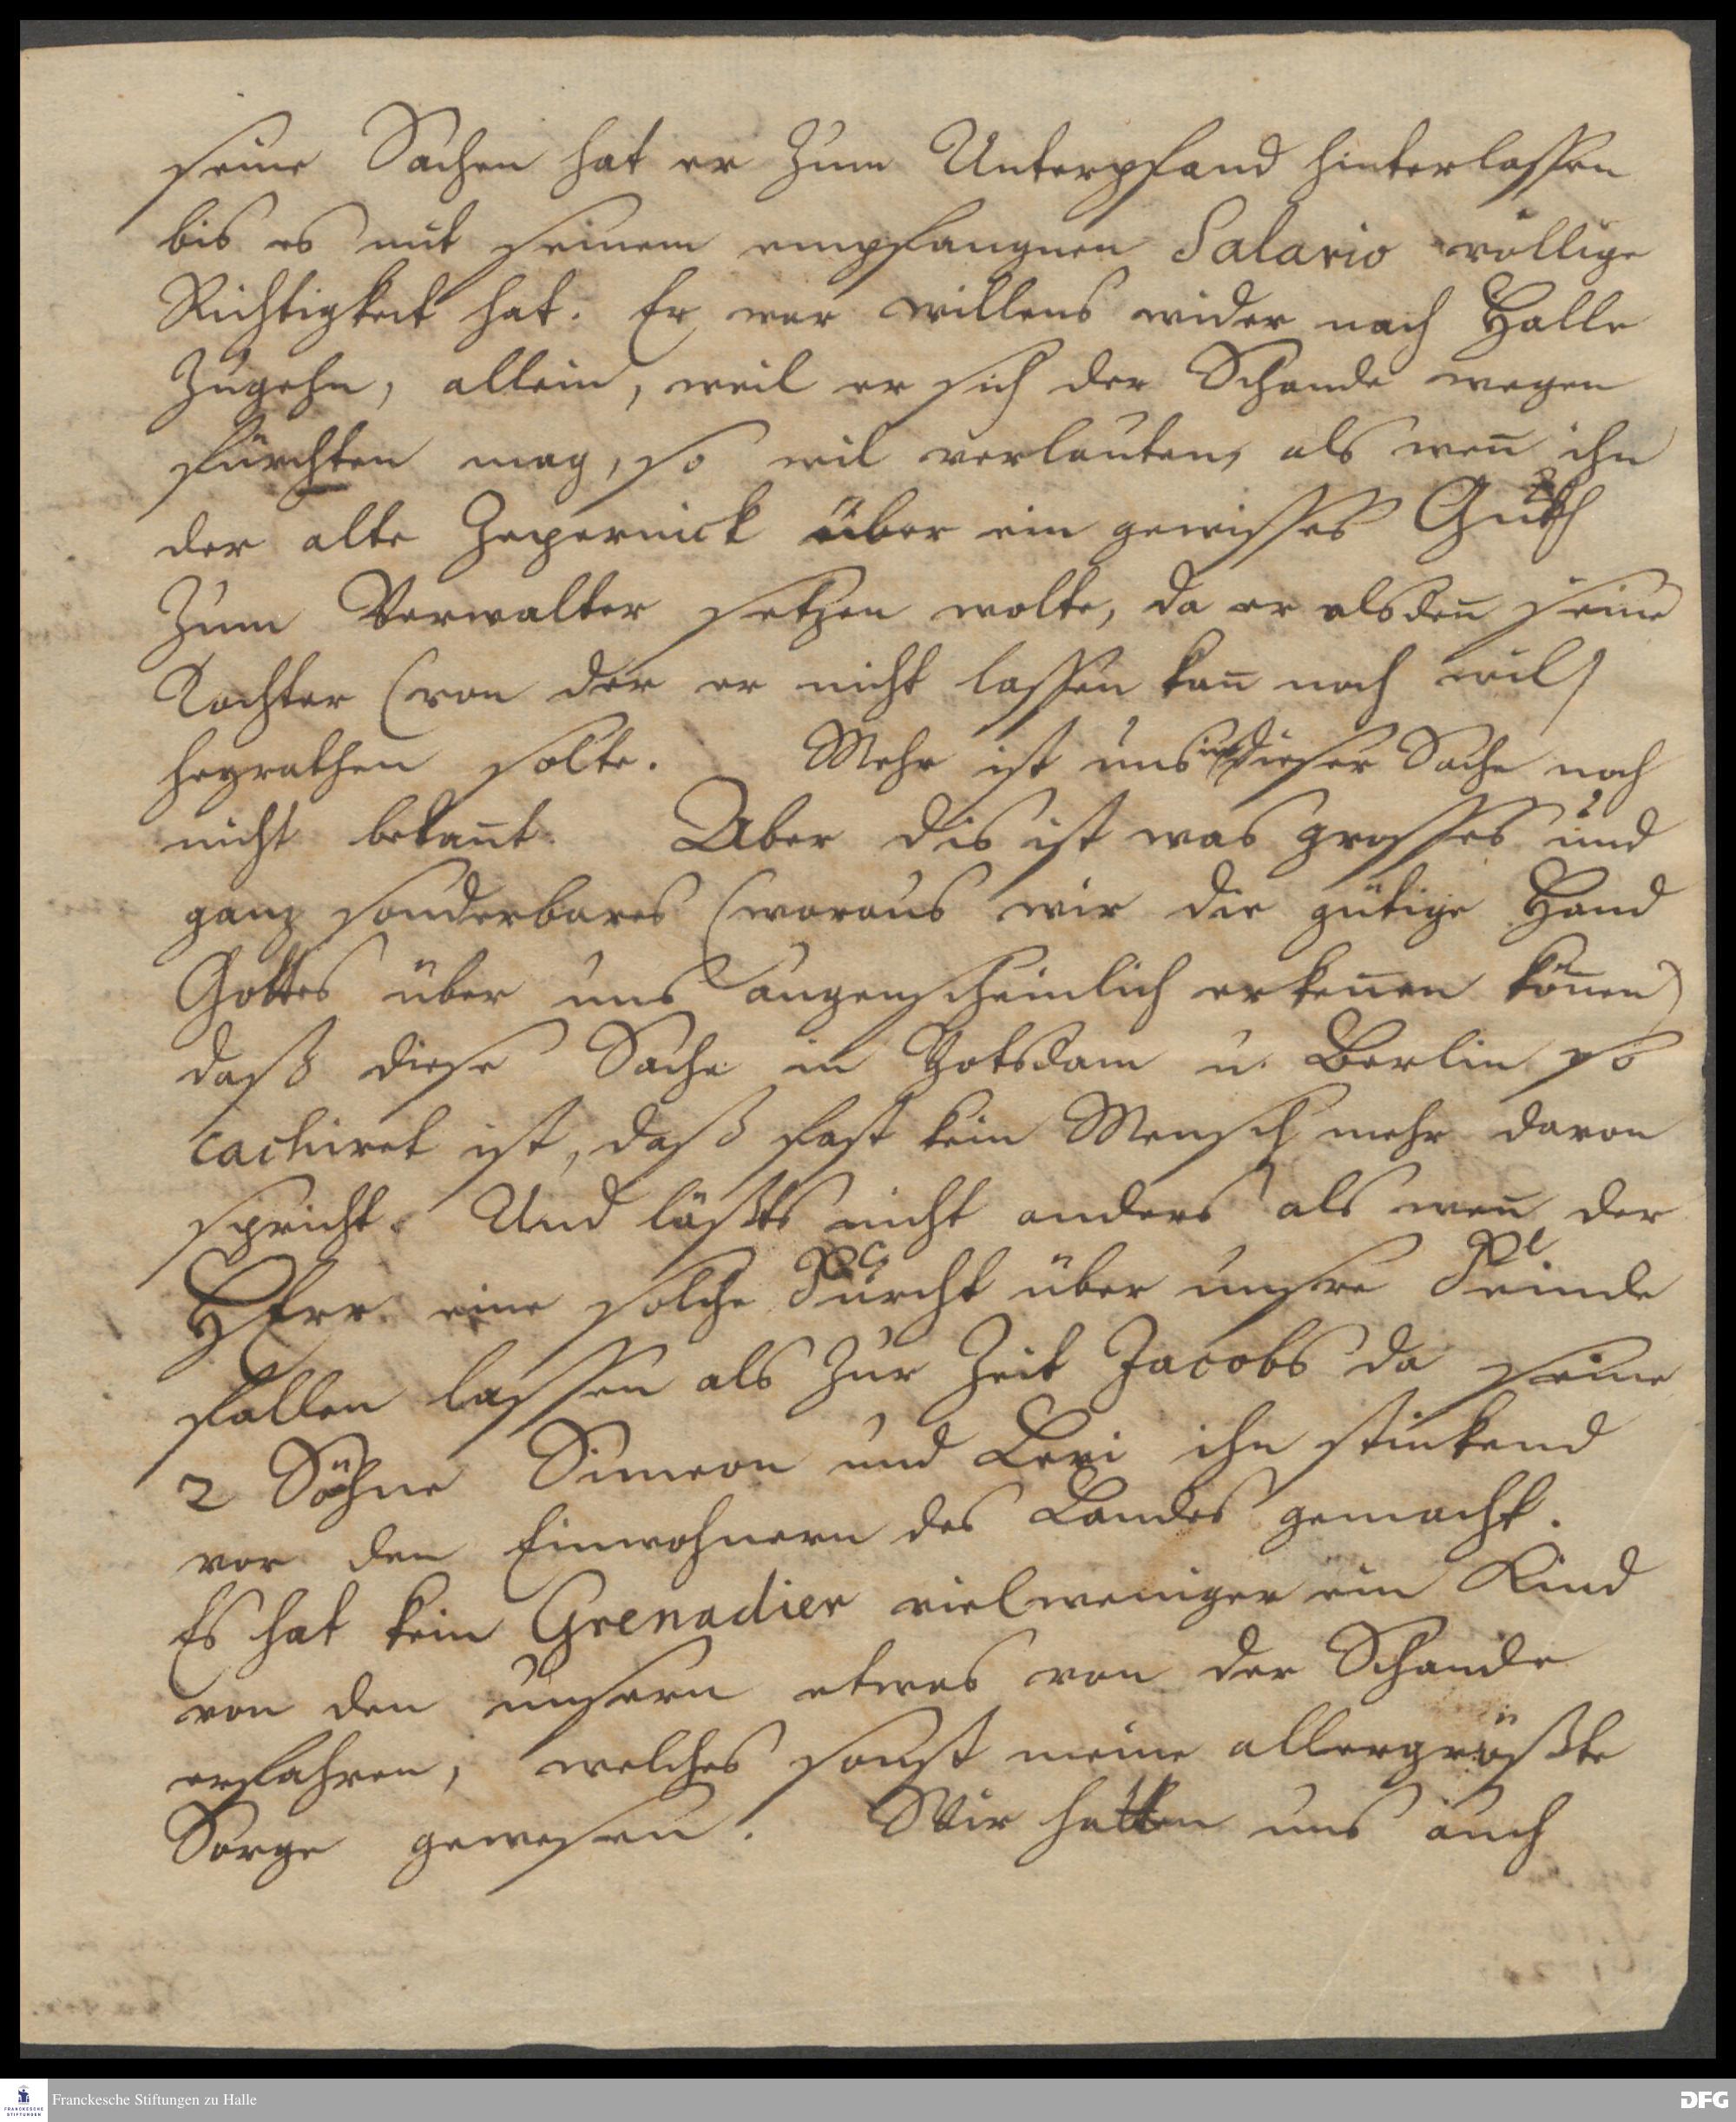 seine Sachen hat er zum Unterpfand hinterlassen
bis es mit seinem empfangnen Salario völlige
Richtigkeit hat. Er war willens wider nach Halle
zugehn, allein, weil er sich der Schande wegen
fürchten mag, so wil verlauten, als wen̄ ihn
der alte Zepernick über ein gewisses Guth
zum Verwalter setzen wolte, da er alsden̄ seine
Tochter (von der er nicht lassen kan̄ noch wil)
heyrathen solte. Mehr ist uns in dieser Sache noch
nicht bekan̄t. Aber dis ist was grosses und
ganz sonderbares (woraus wir die gütige Hand
Gottes über uns augenscheinlich erken̄en kön̄en)
daß diese Sache in Potsdam u. Berlin so
cachiret ist, daß fast kein Mensch mehr davon
spricht. Und läßts nicht anders als wen̄ der
HErr eine solche Furcht über unsre Feinde
fallen lassen als zur Zeit Jacobs da seine
2 Söhne Simeon und Levi ihn stinkend
vor den Einwohnern des Landes gemacht.
Es hat kein Grenadier vielweniger ein Kind
von den unsern etwas von der Schande
erfahren, welches sonst meine allergrößte
Sorge gewesen. Wir hatten uns auch
Franckesche Stiftungen zu Halle
FRANCKESCHE
STIFTUNGEN
DFG